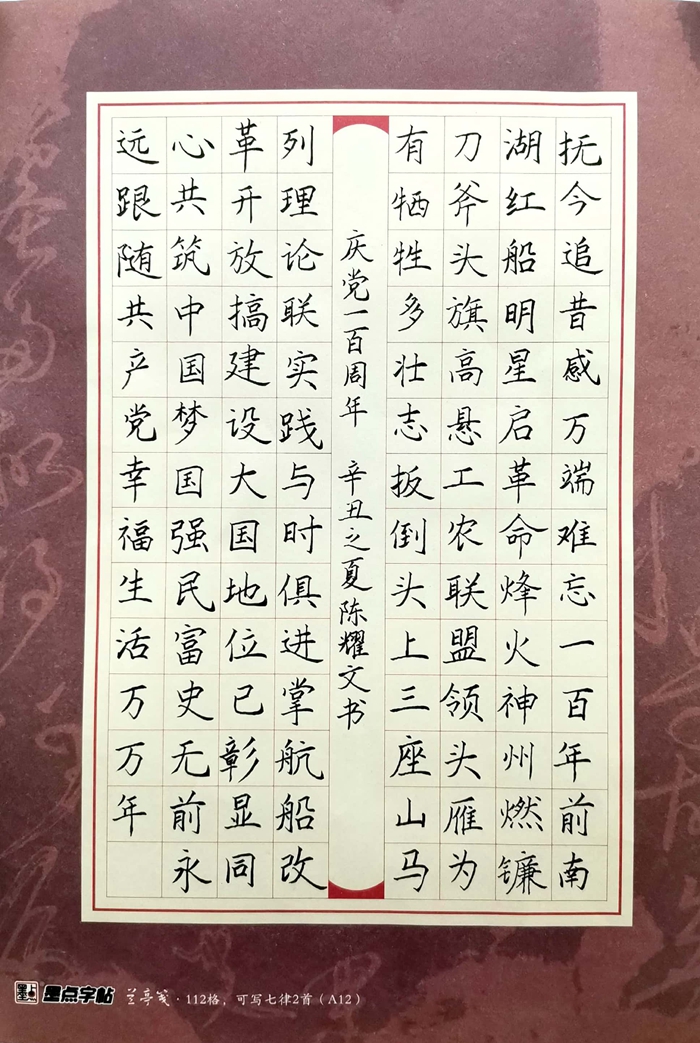 抚今追昔感万端难忘一百年前南
湖红船明星启革命烽火神州燃镰
刀斧头旗高悬工农联盟领头雁为
有牺牲多壮志扳倒头上三座山马
庆党一百周年 辛丑之夏陈耀文书
列理论联实践与时俱进掌航船改
革开放搞建设大国地位已彰显同
心共筑中国梦国强民富史无前永
远跟随共产党幸福生活万万年
墨点 墨点字帖 兰亭笺·112格，可写七律2首（A12）